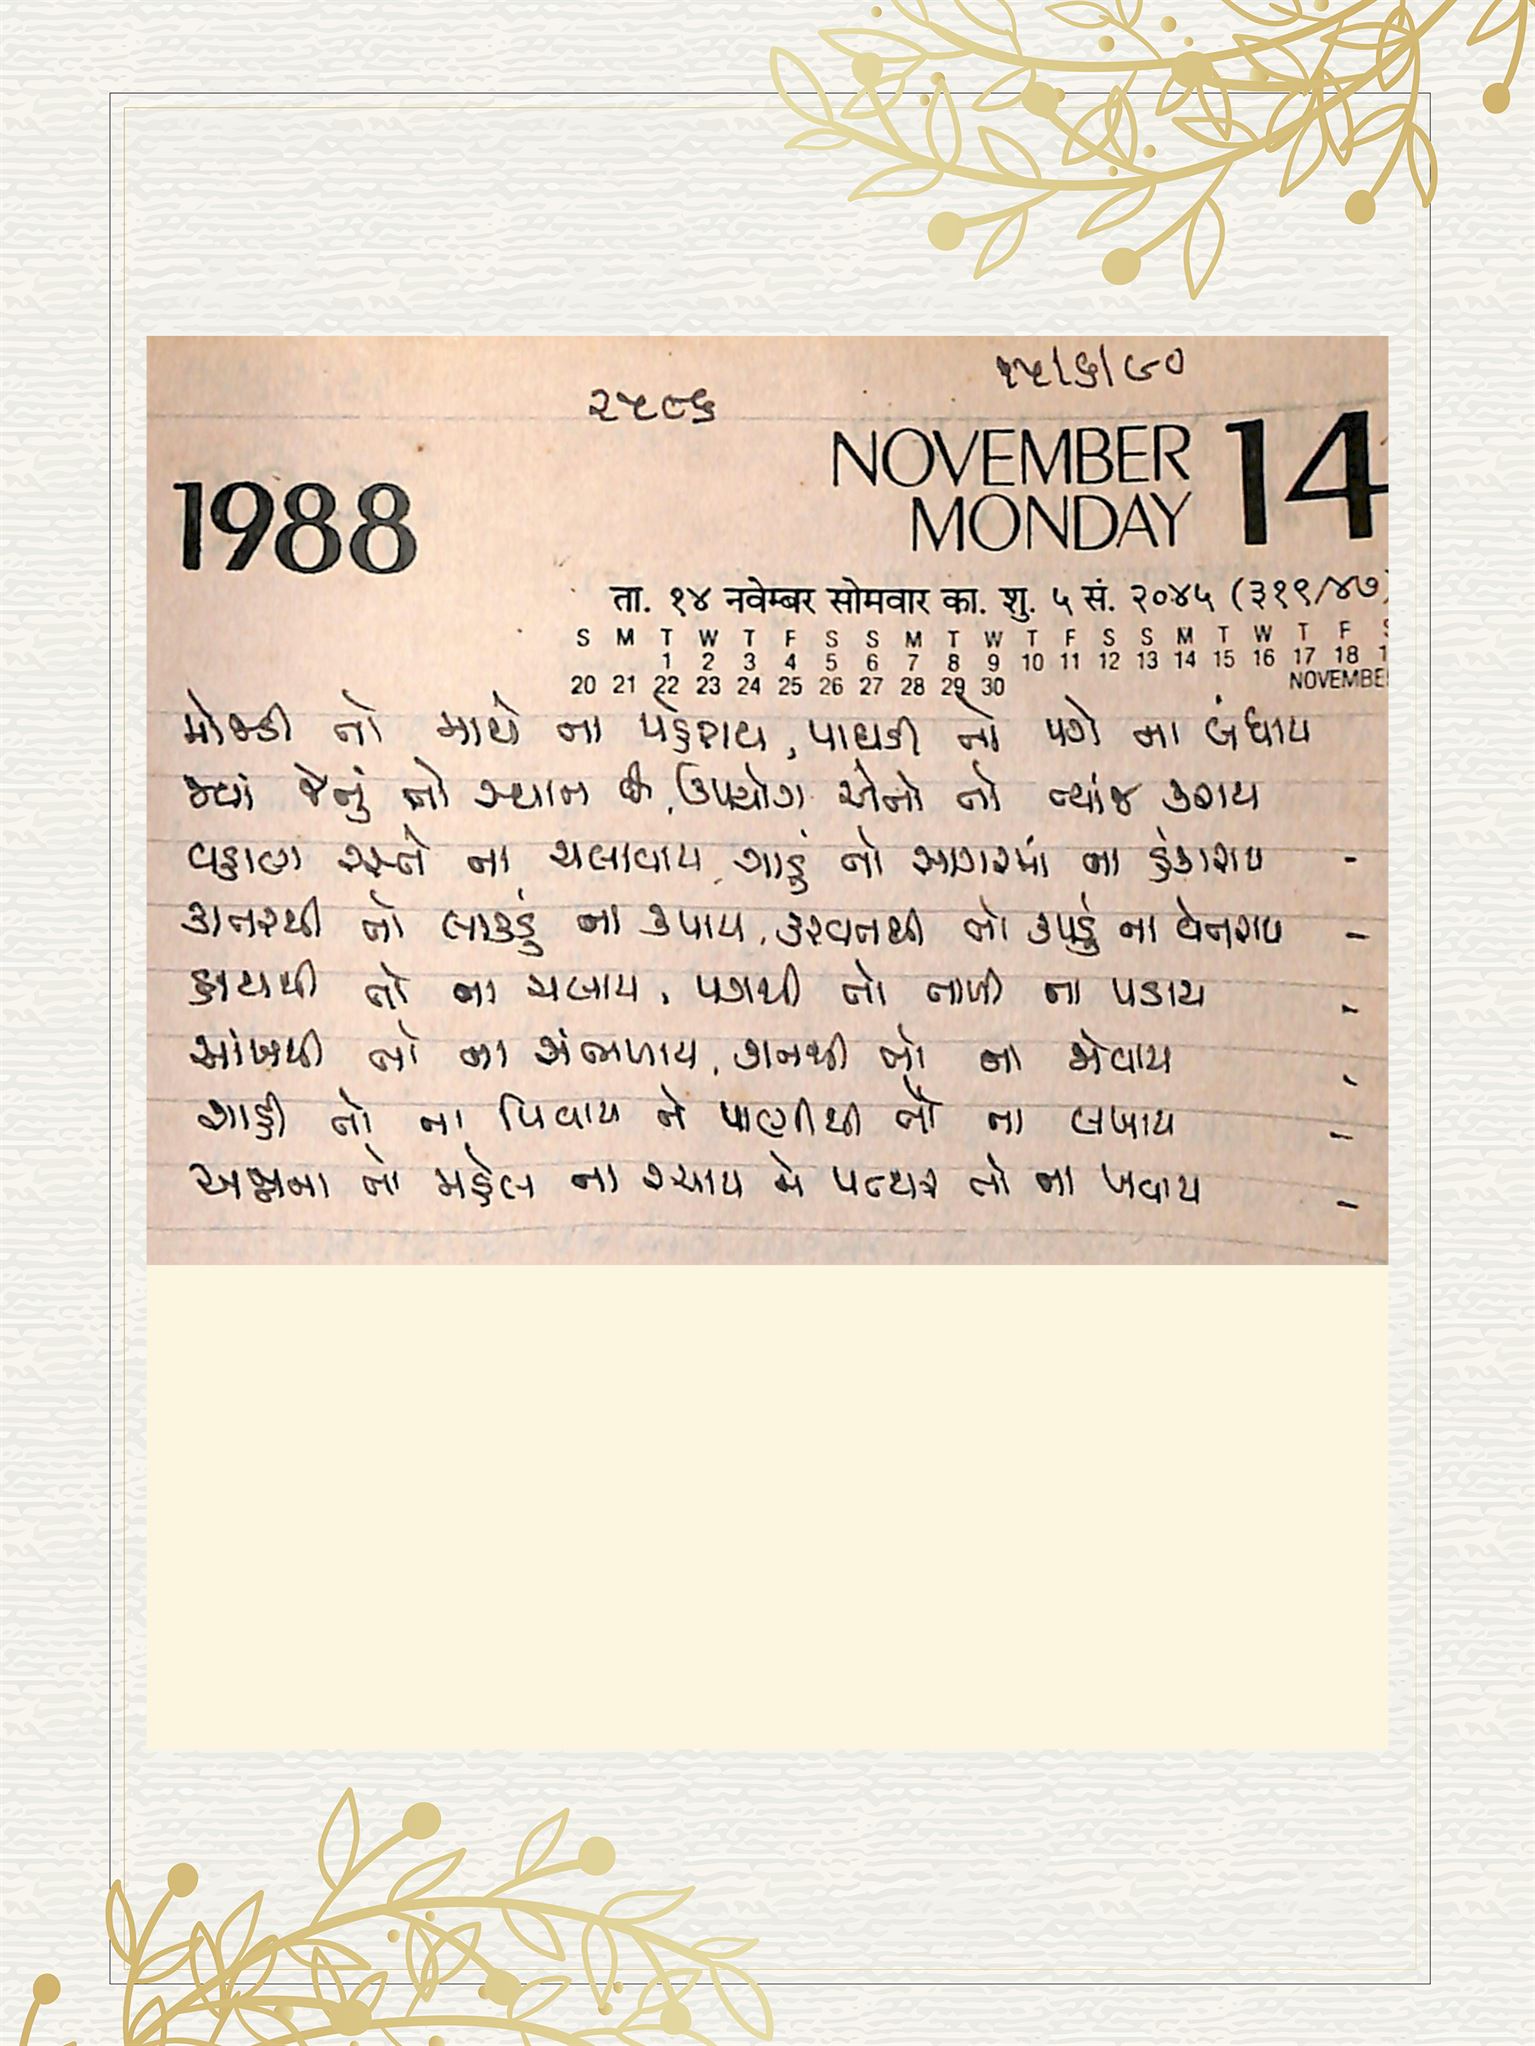 ૧૫/૬/૯૦
૨૫૯૬
NOVEMBER 14
1988
MONDAY
ता. १४ नवेम्बर सोमवार का. शु. ५ सं. २०४५ (३१९/४७)
S M T W T F S S M T W T F S S M T W T F S
1 2 3 4 5 6 7 8 9 10 11 12 13 14 15 16 17 18 1
20 21 22 23 24 25 26 27 28 29 30 NOVEMBE
મોજડી તો માથે ના પહેરાય, પાઘડી તો પગે ના બંધાય
જ્યાં જેનું તો સ્થાન છે, ઉપયોગ એનો તો ત્યાંજ કરાય
વહાણ રસ્તે ના ચલાવાય, ગાડું તો સાગરમાં ના હંકારાય -
કાતરથી તો લાકડું ના કપાય, કરવતથી તો કપડું ના વેતરાય -
હાથથી તો ના ચલાય, પગથી તો તાળી ના પડાય -
આંખથી તો ના સંભળાય, કાનથી તો ના જોવાય -
શાહી તો ના પિવાય ને પાણીથી તો ના લખાય -
અન્નના તો મહેલ ના રચાય ને પથ્થર તો ના ખવાય -